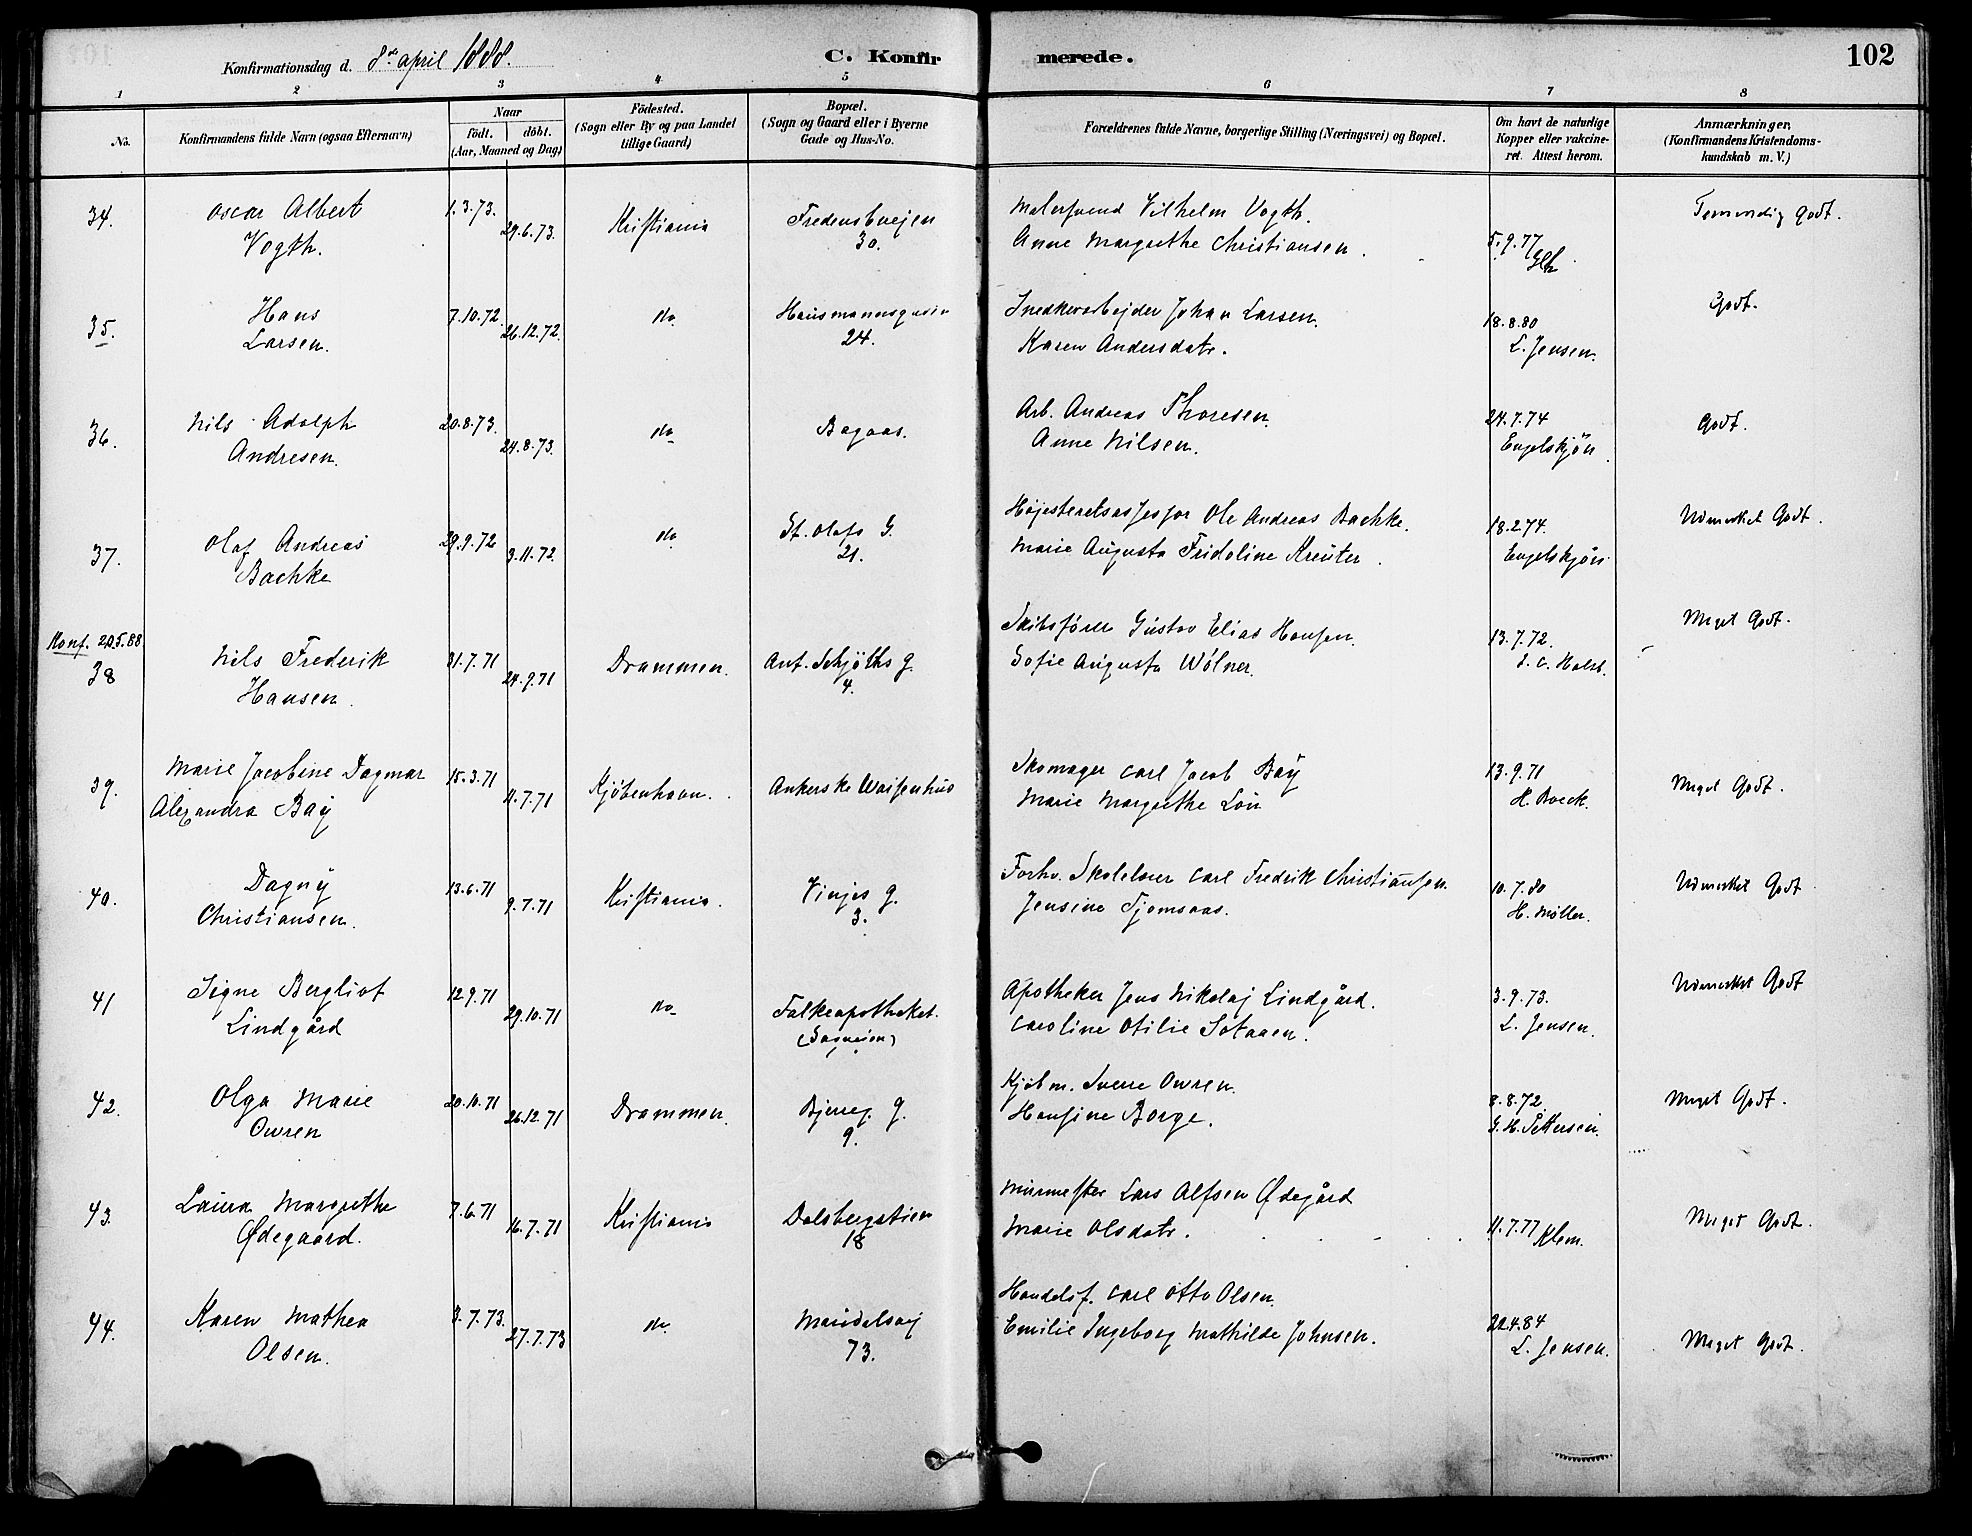 Konfirmationsdag d. 8de april 1888.
C. Konfirmerede.
102
1 2 3 4 5 6 7 8
No.
Konfirmandens fulde Navn (ogsaa Efternavn)
Naar
födt. döbt.
(Aar, Maaned og Dag)
Födested.
(Sogn eller By og paa Landet
tillige Gaard)
Bopæl.
(Sogn og Gaard eller i Byerne
Gade og Hus-No.
Forældrenes fulde Navne, borgerlige Stilling (Næringsvei) og Bopæl.
Om havt de naturlige
Kopper eller vakcine-
ret. Attest herom.
Anmærkninger,
(Konfirmandens Kristendoms-
kundskab m. V.)
34. Oscar Albert 1.3.73. 29.6.73. Kristiania Fredensbvejen Malersvend Vilhelm Vogth. 5.9.77 Temmelig Godt.
Vogth. 30. Anne Margrethe Christiansen.
35. Hans 7.10.72. 26.12.72. do Hausmannsgaden Snedkerarbejder Johan Larsen. 18.8.80 Godt.
Larsen. 24. Karen Andersdatr. L. Jensen.
36. Nils Adolph 20.8.73. 24.8.73. do Bagaas. Arb. Andreas Thoresen. 24.7.74 Godt.
Andresen. Anne Nilsen. Engelskjøn.
37. Olaf Andreas 29.9.72 3.11.72. do St. Olafs G. Højesteretsassessor Ole Andreas Bachke. 18.2.74. Udmerket Godt.
Bachke 21. Marie Augusta Fridoline Kreuter. Engelskjøn
Konf. 20.5.88
38 Nils Frederik 31.7.71 24.9.71 Drammen. Ant. Schjøths g. Skibsfører Gustav Elias Hansen. 13.7.72. Meget Godt.
Hansen. 4. Sofie Augusta Wölner. J. C. Holst.
39. Marie Jacobine Dagmar 15.3.71 11.7.71 Kjøbenhavn. Ankerske Waisenhus Skomager Carl Jacob Bay 13.9.71 Meget Godt.
Alexandra Bay Marie Margrethe Lön H. Boeck.
40. Dagny 13.6.71 9.7.71 Kristiania. Vinjes g. Forhv. Skolelærer Carl Fredrik Christiansen. 10.7.80 Udmerket Godt
Christiansen. 3. Jensine Tjomsaas. H. Møller.
41 Signe Bergliot 12.9.71 29.10.71 do Falkeapotheket. Apotheker Jens Nikolaj Lindgård. 3.9.73. Udmerket Godt
Lindgård (Sagveien) Caroline Otilie Sotaaen. L. Jensen.
42. Olga Marie 20.10.71 26.12.71 Drammen. Bjerreg. g. Kjøbm. Sverre Owren. 8.8.72 Meget Godt.
Owren 9. Hansine Borge. G. H. Pettersen.
43. Laura Margrethe 7.6.71 16.7.71 Kristiania Dalsbergstien Murmester Lars Alfsen Ødegård 11.7.77 Klem. Meget Godt.
Ødegaard. 18 Marie Olsdatr.
44. Karen Mathea 3.7.73. 27.7.73 do. Maridalsvej Handelsf. Carl Otto Olsen. 22.4.84 Meget Godt.
Olsen. 73. Emilie Ingeborg Mathilde Johnsen. L. Jensen.